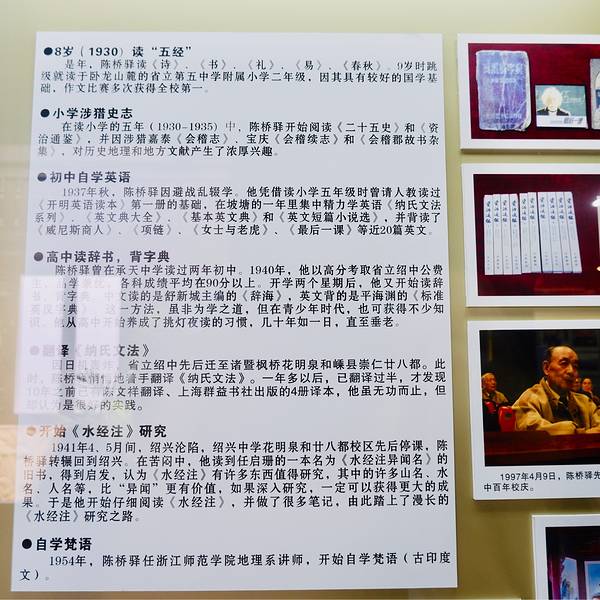 ●8岁（1930）读“五经”
是年，陈桥驿读《诗》、《书》、《礼》、《易》、《春秋》。9岁时跳
级就读于卧龙山麓的省立第五中学附属小学二年级，因其具有较好的国学基
础，作文比赛多次获得全校第一。
●小学涉猎史志
在读小学的五年（1930-1935）中，陈桥驿开始阅读《二十五史》和《资
治通鉴》，并因涉猎嘉泰《会稽志》、宝庆《会稽续志》和《会稽郡故书杂
集》，对历史地理和地方文献产生了浓厚兴趣。
●初中自学英语
1937年秋，陈桥驿因避战乱辍学。他凭借读小学五年级时曾请人教读过
《开明英语读本》第一册的基础，在坡塘的一年里集中精力学英语《纳氏文法
系列》、《英文典大全》、《基本英文典》和《英文短篇小说选》，并背读了
《威尼斯商人》、《项链》、《女士与老虎》、《最后一课》等近20篇英文。
●高中读辞书，背字典
陈桥驿曾在承天中学读过两年初中。1940年，他以高分考取省立绍中公费
生，品学兼优，各科成绩平均在90分以上。开学两个星期后，他又开始读辞
书，背字典，中文读的是舒新城主编的《辞海》，英文背的是平海渊的《标准
英汉字典》。这一方法，虽非为学之道，但在青少年时代，也可获得不少知
识。他从高中开始养成了挑灯夜读的习惯，几十年如一日，直至垂老。
●翻译《纳氏文法》
因日机轰炸，省立绍中先后迁至诸暨枫桥花明泉和嵊县崇仁廿八都。此
时，陈桥驿悄悄地着手翻译《纳氏文法》。一年多以后，已翻译过半，才发现
10年之前已有 文祥翻译、上海群益书社出版的4册译本，他虽无功而止，但
却认为是很好的实践。
●开始《水经注》研究
1941年4、5月间，绍兴沦陷，绍兴中学花明泉和廿八都校区先后停课，陈
桥驿转辗回到绍兴。在苦闷中，他读到任启珊的一本名为《水经注异闻名》的
旧书，得到启发，认为《水经注》有许多东西值得研究，其中的许多山名、水
名、人名等，比“异闻”更有价值，如果深入研究，一定可以获得更大的成
果。于是他开始仔细阅读《水经注》，并做了很多笔记，由此踏上了漫长的
《水经注》研究之路。
●自学梵语
1954年，陈桥驿任浙江师范学院地理系讲师，开始自学梵语（古印度
文）。
1997年4月9日，陈桥驿先
中百年校庆。